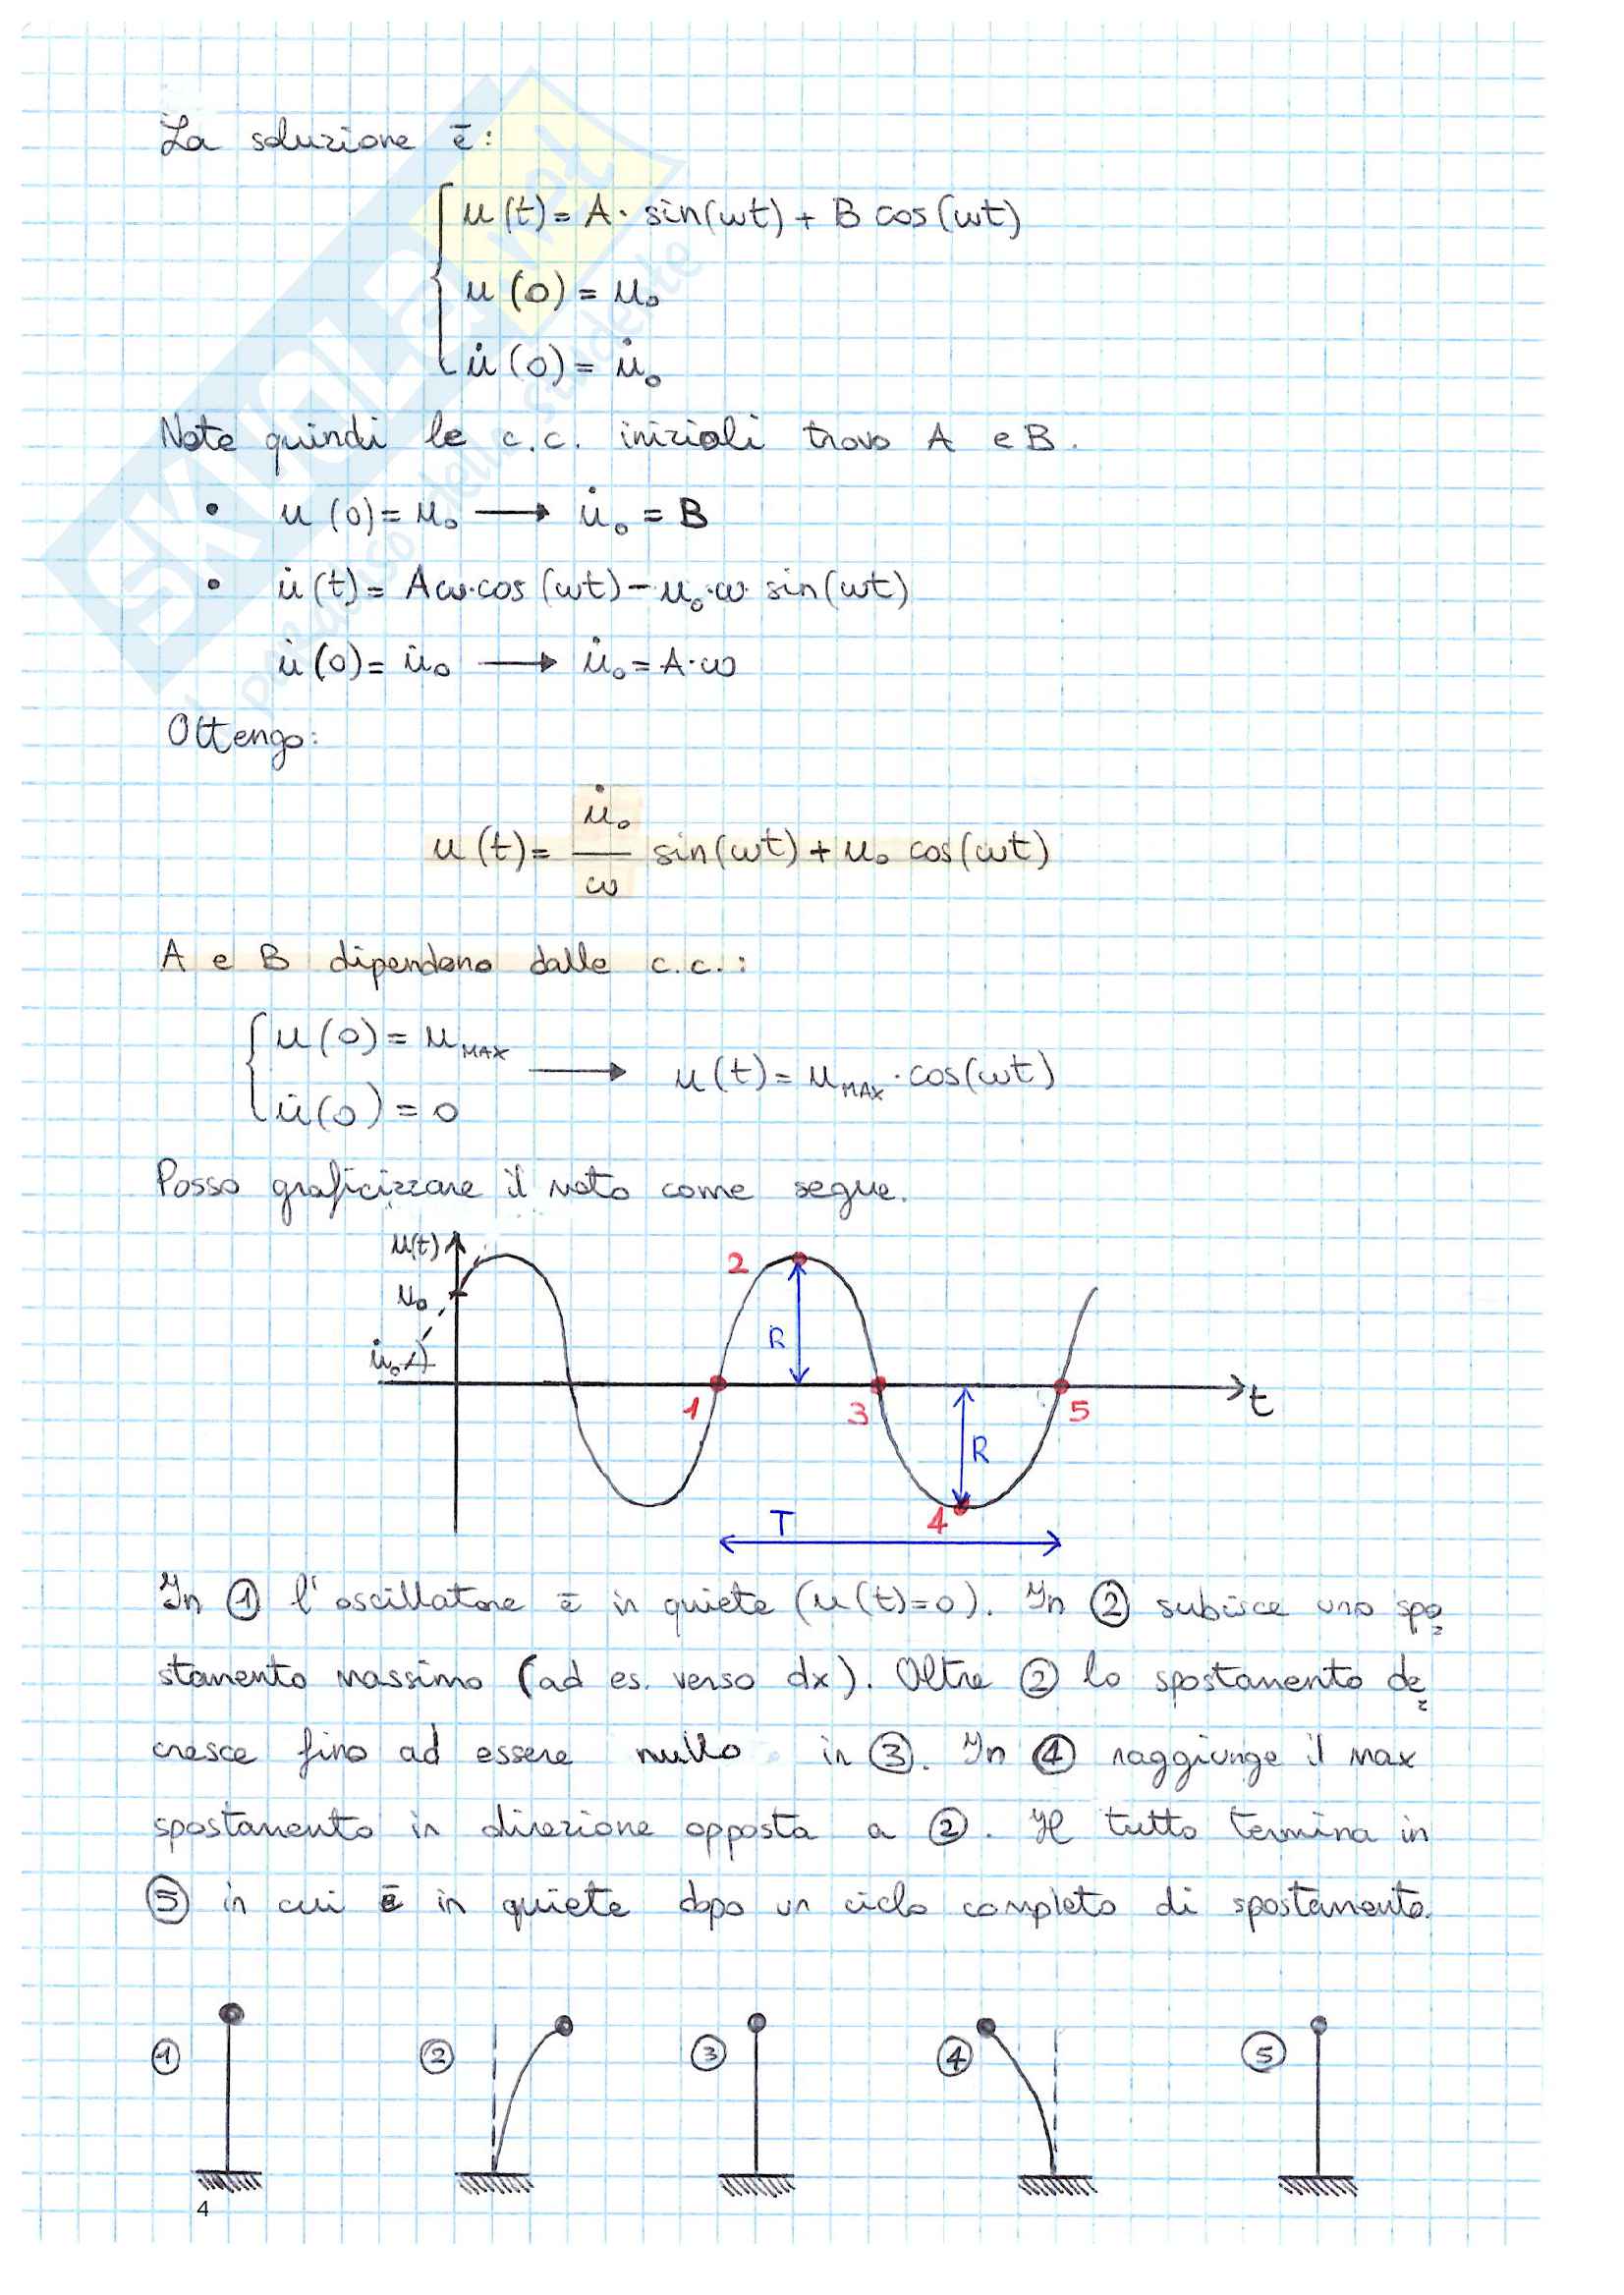 La soluzione è:
u(t) = A · sin(ωt) + B cos(ωt)
u(0) = u₀
u̇(0) = u̇₀
Note quindi le c.c. iniziali trovo A e B.
• u(0) = u₀ → u̇₀ = B
• u̇(t) = Aω·cos(ωt) − u₀·ω· sin(ωt)
u̇(0) = u̇₀ → u̇₀ = A·ω
Ottengo:
u(t) = u̇₀/ω sin(ωt) + u₀ cos(ωt)
A e B dipendono dalle c.c.:
u(0) = u_MAX
→ u(t) = u_MAX · cos(ωt)
u̇(0) = 0
Posso graficizzare il moto come segue.
u(t)
2
u₀
R
u̇₀
1 3 5 t
R
4
T
In ① l'oscillatore è in quiete (u(t)=0). In ② subisce uno spo
stamento massimo (ad es. verso dx). Oltre ② lo spostamento de
cresce fino ad essere nullo in ③. In ④ raggiunge il max
spostamento in direzione opposta a ②. Il tutto termina in
⑤ in cui è in quiete dopo un ciclo completo di spostamento.
① ② ③ ④ ⑤
4
SKUOLA.net